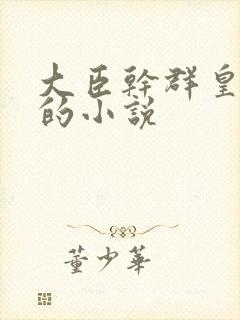 大臣幹群皇
的小説
董少華